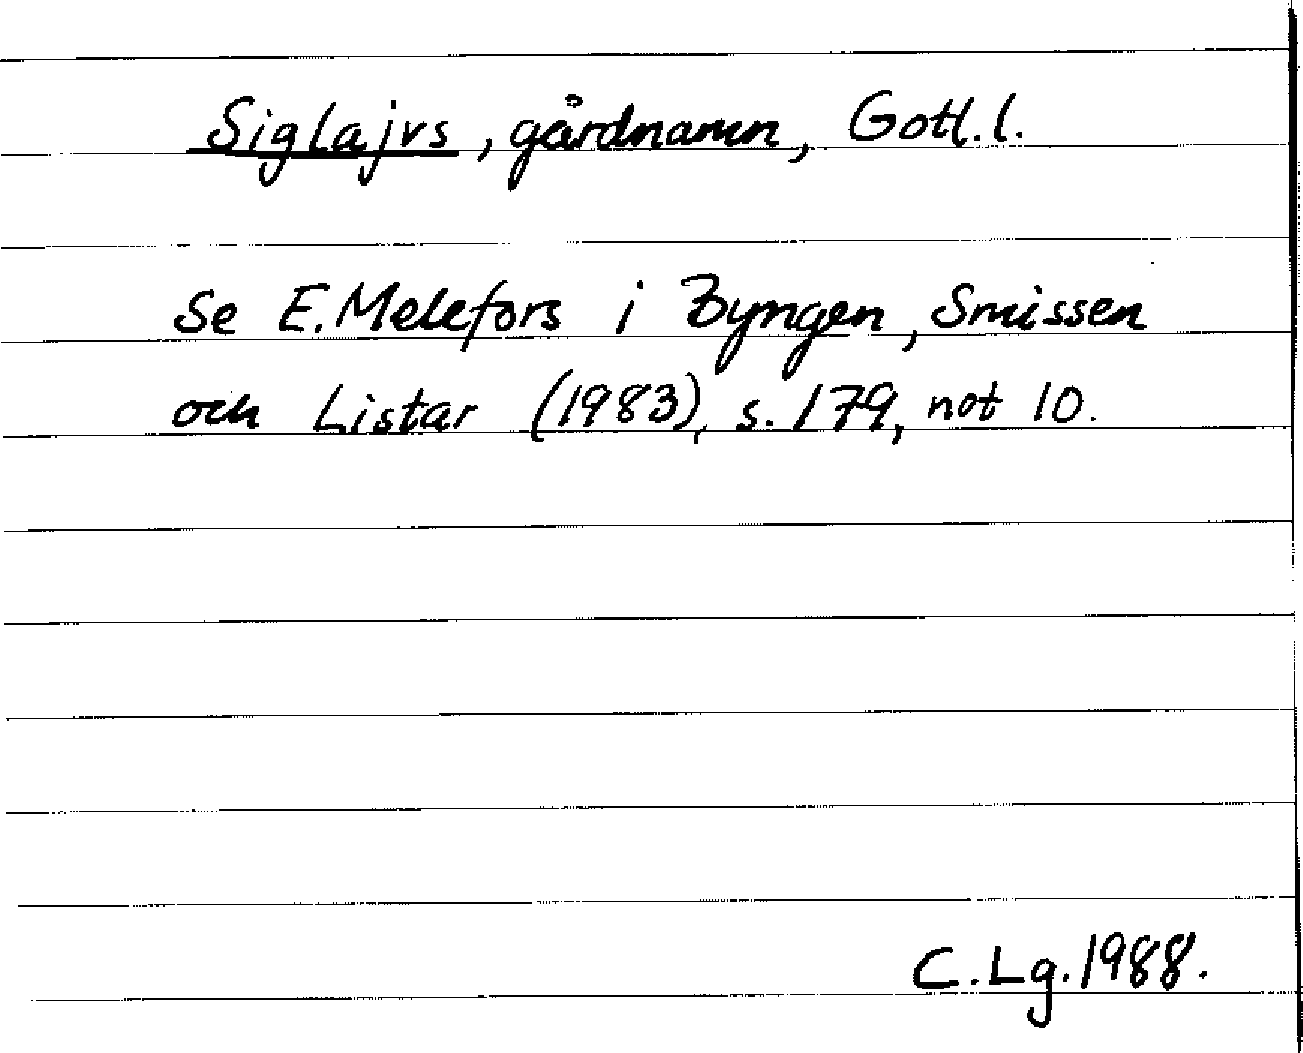 Siglajvs, gårdnamn, Gotl. l.
Se E. Melefors i Byngen, Smissen
och Listar (1983), s. 179, not 10.
C. Lg. 1988.